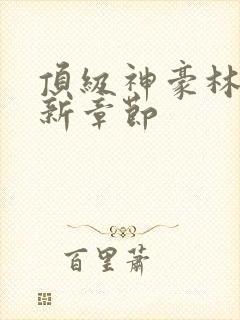 頂級神豪林
新章節
百里蕭